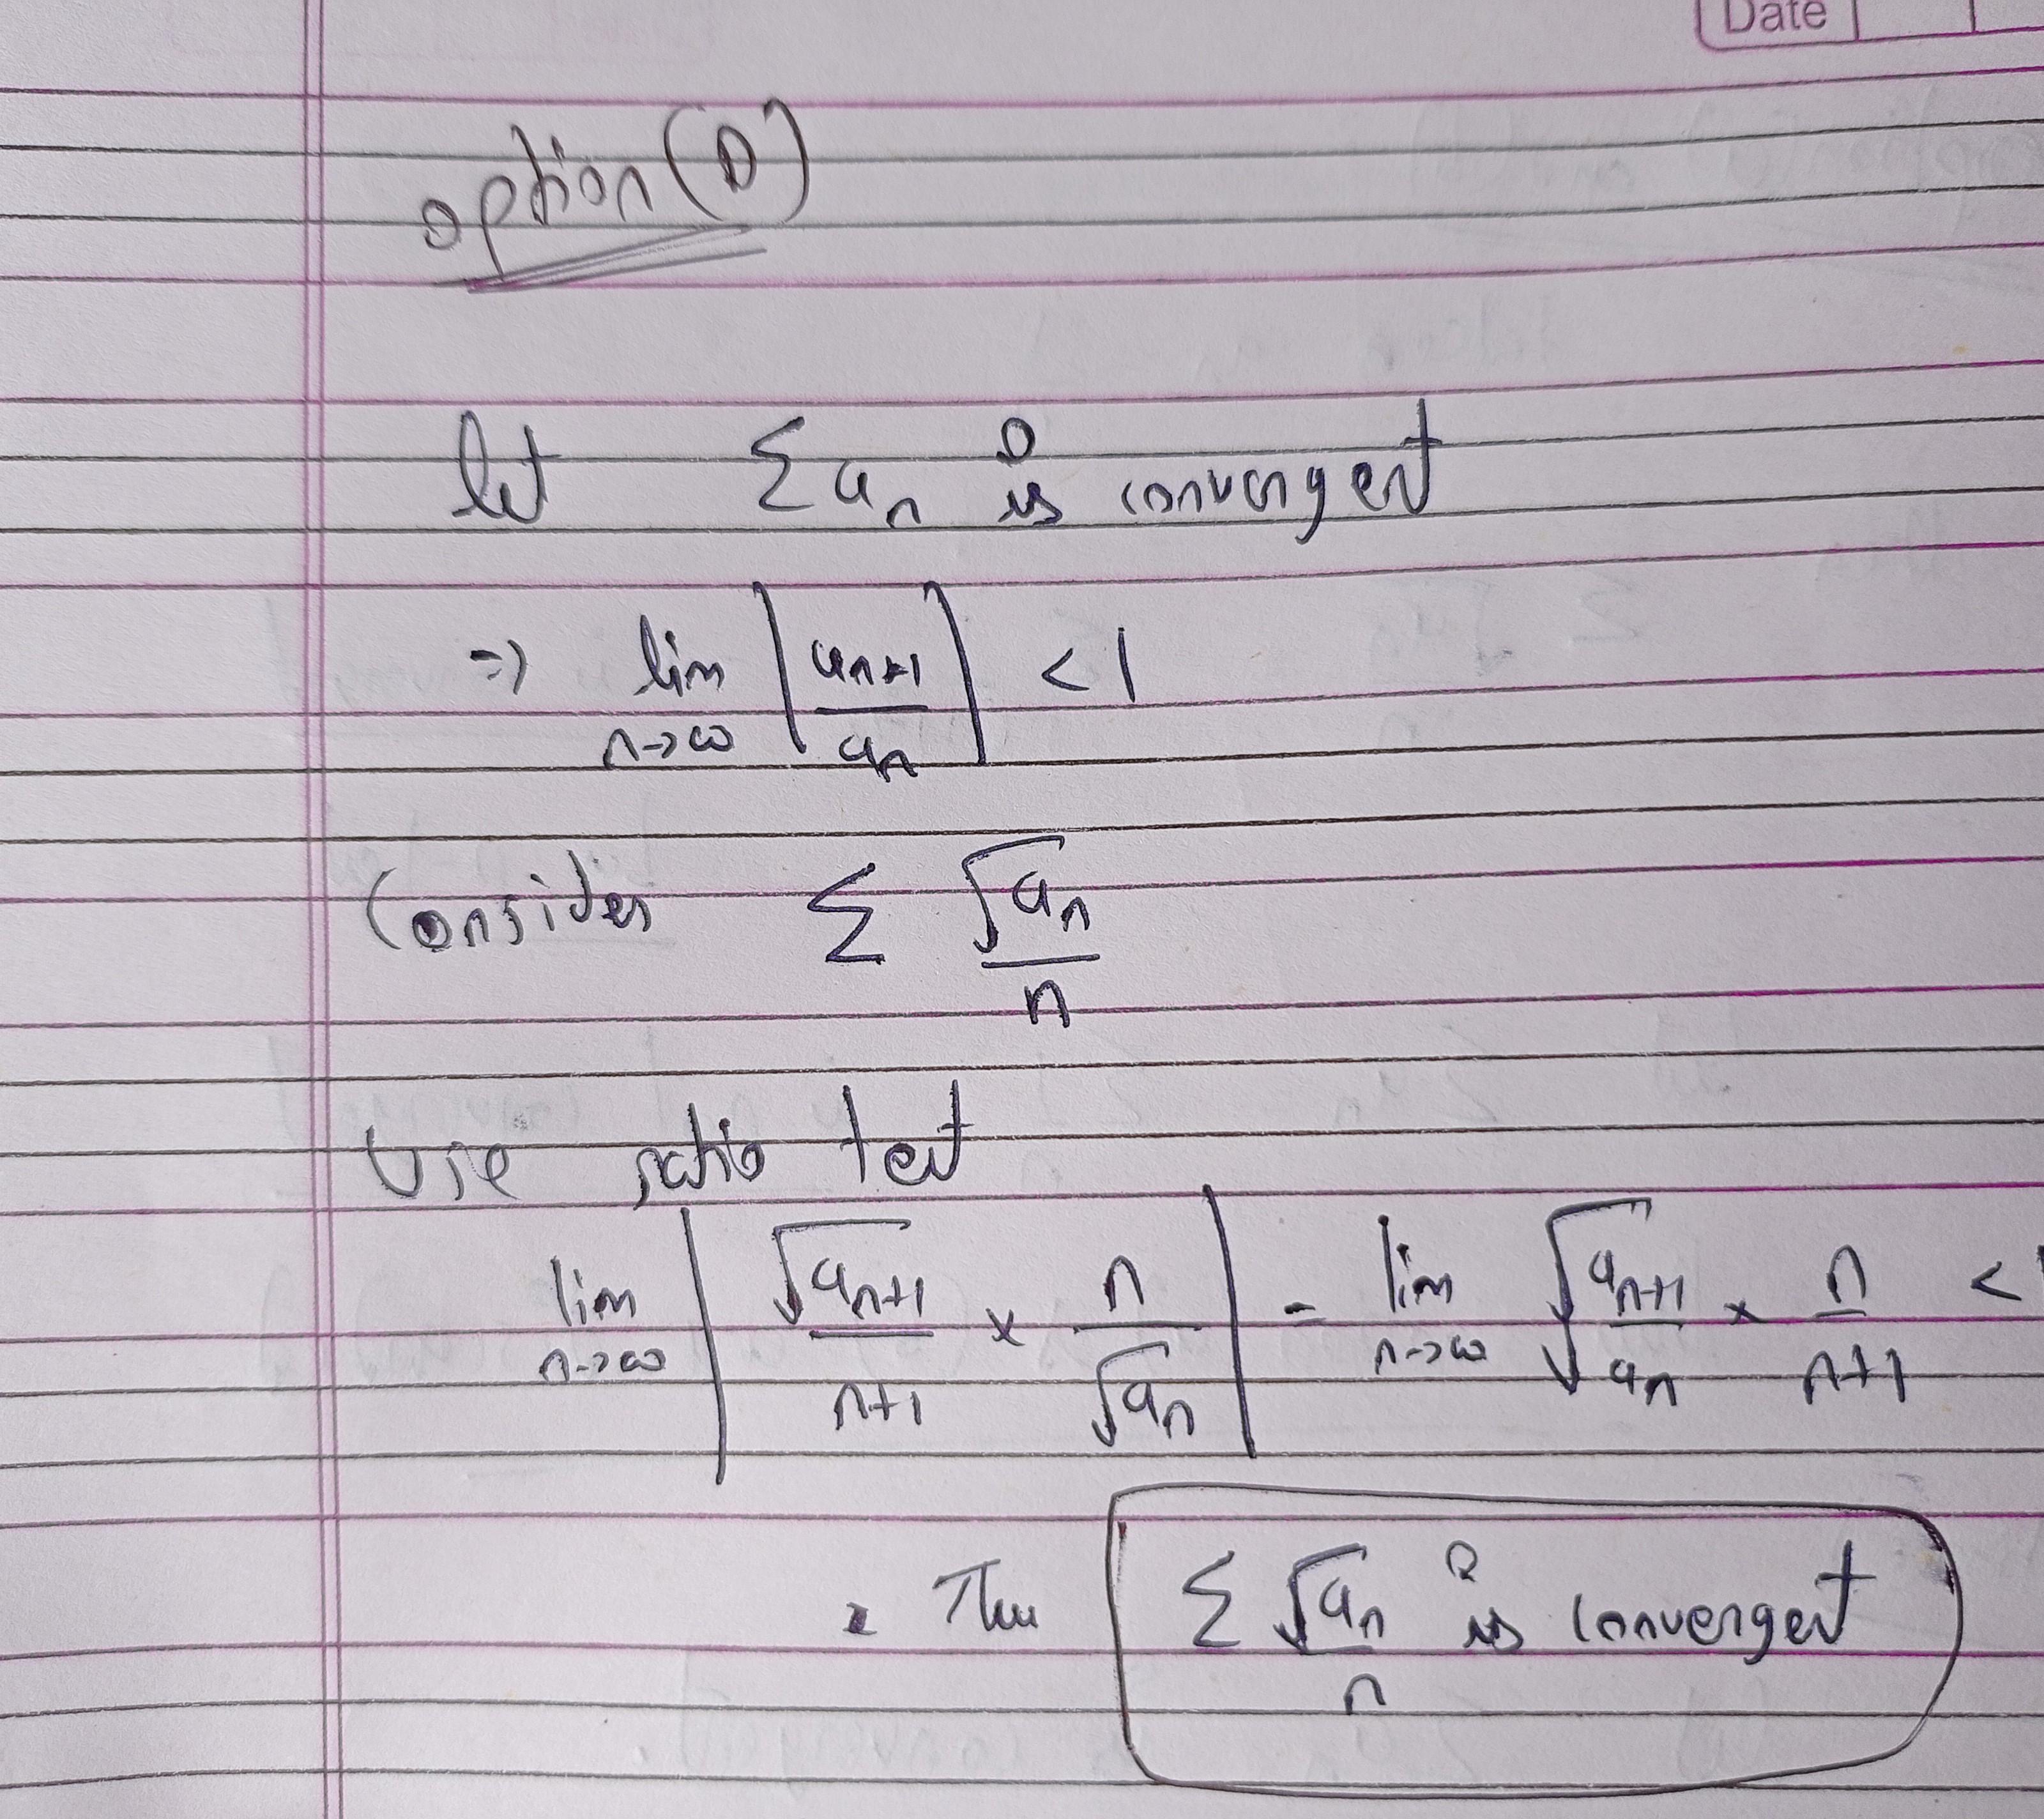 Date
option (D)
let Σ aₙ is convergent
=> lim n→∞ | aₙ₊₁ / aₙ | < 1
Consider Σ √aₙ / n
Use ratio test
lim n→∞ | √aₙ₊₁ / n+1 × n / √aₙ | = lim n→∞ √(aₙ₊₁ / aₙ) × n / n+1 < 1
Thus Σ √aₙ / n is convergent